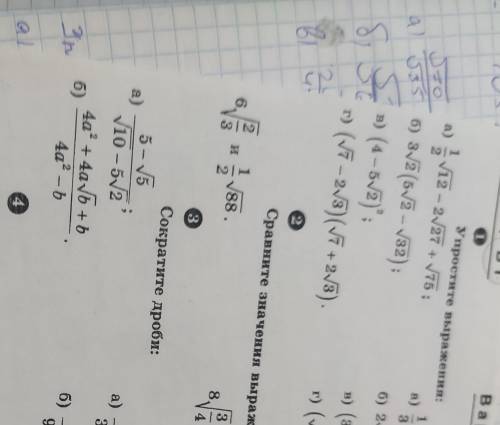 Ва
1
Упростите выражения:
а) \frac{1}{2}√12 − 2√27 + √75;
б) 3√2(5√2 − √32);
в) (4 − 5√2)²;
г) (√7 − 2√3)(√7 + 2√3).
2
Сравните значения выраж
6√\frac{2}{3} и \frac{1}{2}√88.
3
Сократите дроби:
а) \frac{5 − √5}{√10 − 5√2};
б) \frac{4a² + 4a√b + b}{4a² − b}.
4
а) \frac{1}{3}
б) 2
в) (3
г) (√
8√\frac{3}{4}
а)
б)
а) \frac{√70}{√35}
б)
в)